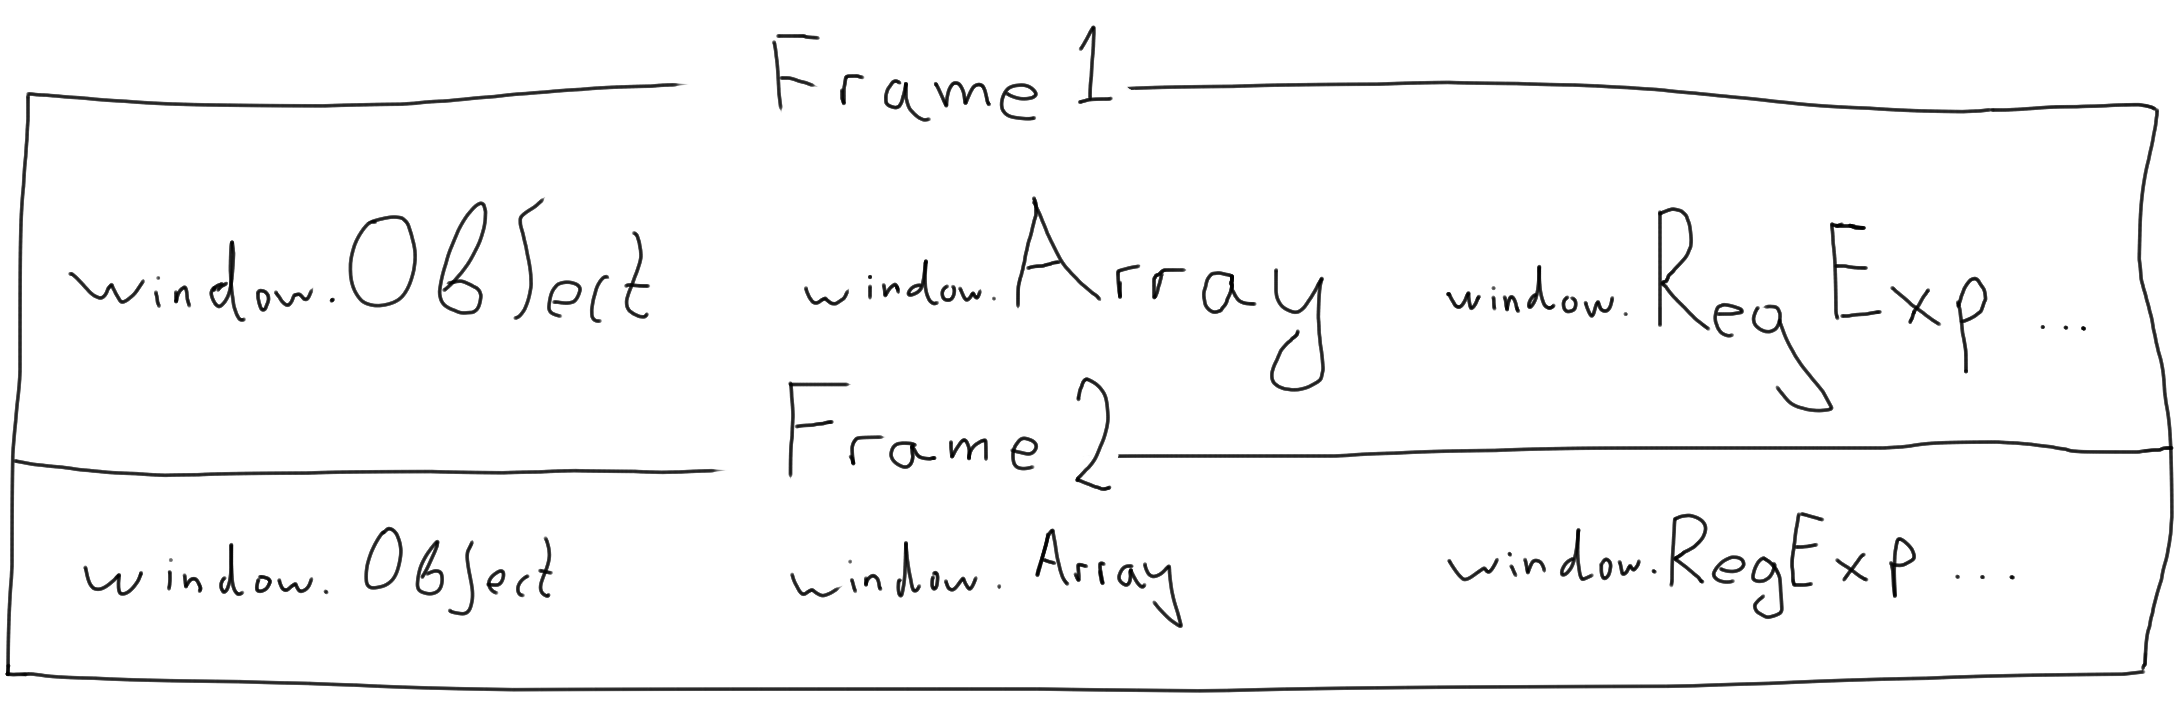 Frame 1
window.Object window.Array window.RegExp ...
Frame 2
window.Object window.Array window.RegExp ...